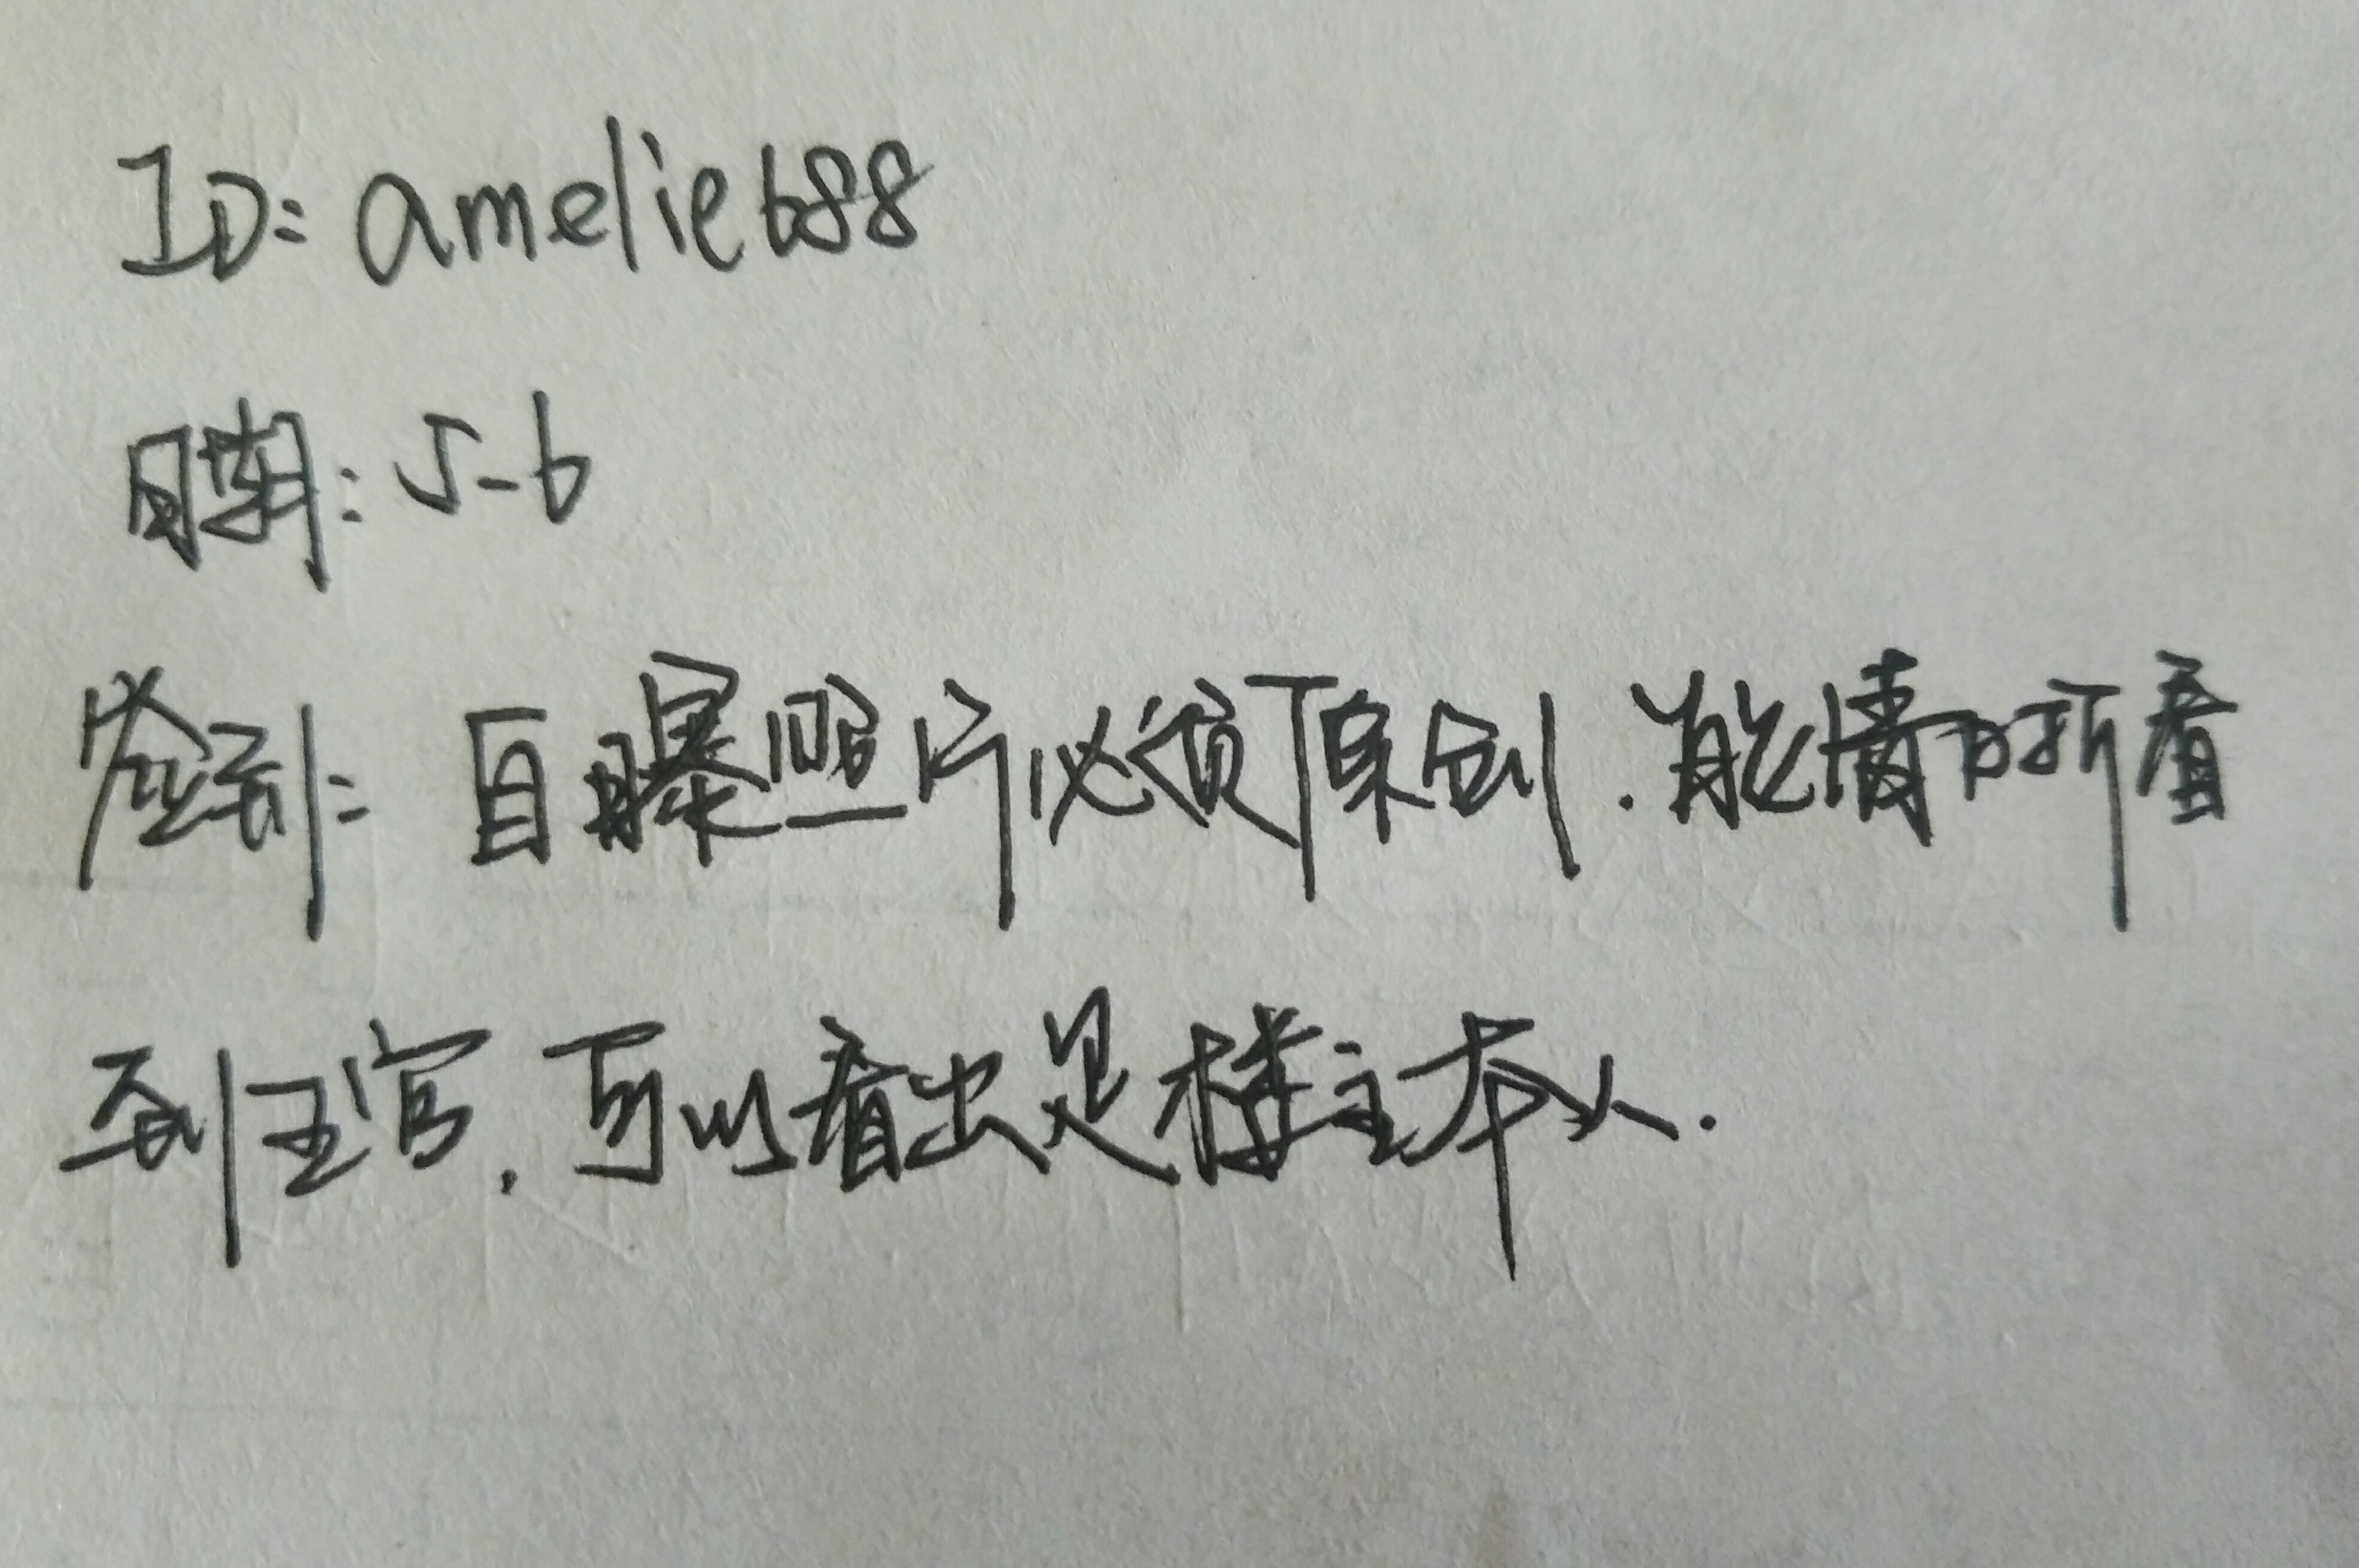 ID: amelie688
日期: 5-6
签到: 自曝照片必须原创.能清晰看
到五官,可以看出是楼主本人.